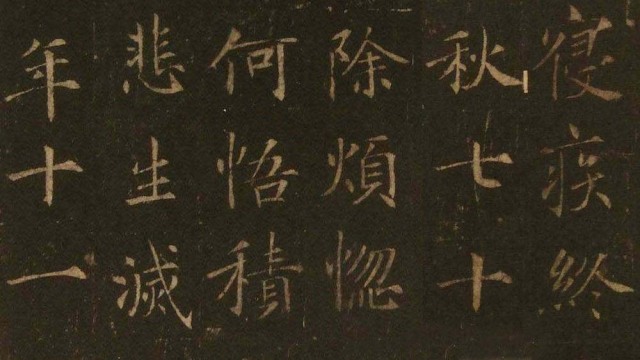 寑疾終
秋七十
除煩惚
何悟積
悲生滅
年十一